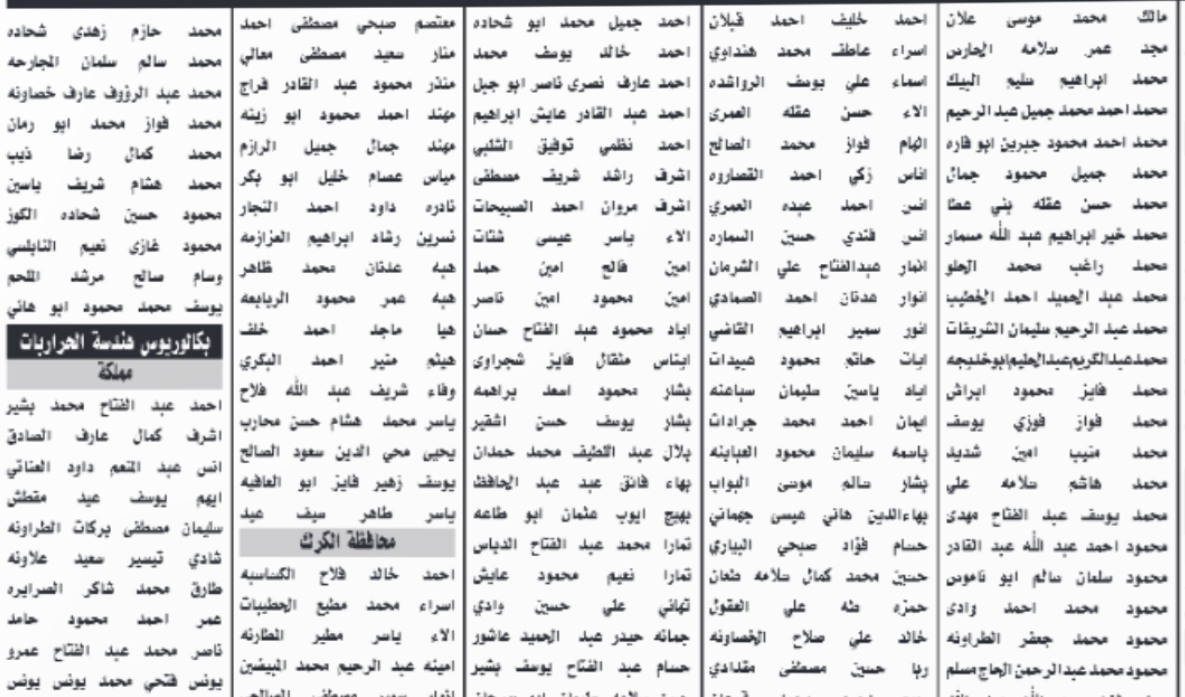 مالك محمد موسى علان
مجد عمر سلامه الحارس
محمد ابراهيم سليم البيك
محمد احمد محمد جميل عبد الرحيم
محمد احمد محمود جبرين ابو فاره
محمد جميل محمود جمال
محمد حسن عقله بني عطا
محمد خير ابراهيم عبد الله مسمار
محمد راغب محمد الحلو
محمد عبد الحميد احمد الخطيب
محمد عبد الرحيم سليمان الشريفات
محمد عبد الكريم عبد الحليم ابو خديجه
محمد فايز محمود ابراش
محمد فواز فوزي يوسف
محمد منيب امين شديد
محمد هاشم سلامه علي
محمد يوسف عبد الفتاح مهدى
محمود احمد عبد الله عبد القادر
محمود سلمان سالم ابو ناموس
محمود محمد احمد وادى
محمود محمد جعفر الطراونه
محمود محمد عبد الرحمن الحاج مسلم
احمد خليف احمد قبلان
اسراء عاطف محمد هنداوي
اسماء علي يوسف الرواشده
الاء حسن عقله العمرى
الهام فواز محمد الصالح
اناس زكي احمد القصاروه
انس احمد عبده العمري
انس فندي حسين السماره
انمار عبدالفتاح علي الشرمان
انوار عدنان احمد الصمادي
انور سمير ابراهيم القاضي
ايات حاتم محمود عبيدات
اياد ياسين سليمان سباعنه
ايمان احمد محمد جرادات
باسمه سليمان محمود العبابنه
بشار سالم موسى البواب
بهاءالدين هاني عيسى جهماني
حسام فؤاد صبحي البياري
حسين محمد كمال سلامه طعان
حمزه طه علي العقول
خالد علي صلاح الخصاونه
ربا حسين مصطفى مقدادي
احمد جميل محمد ابو شحاده
احمد خالد يوسف محمد
احمد عارف نصرى ناصر ابو جبل
احمد عبد القادر عايش ابراهيم
احمد نظمي توفيق الشلبي
اشرف راشد شريف مصطفى
اشرف مروان احمد الصبيحات
الاء ياسر عيسى شتات
امين فالح امين حمد
امين محمود امين ناصر
اياد محمود عبد الفتاح حسان
ايناس مثقال فايز شجراوى
بشار محمود اسعد براهمه
بشار يوسف حسن اشقير
بلال عبد اللطيف محمد حمدان
بهاء فائق عبد عبد الحافظ
بهيج ايوب عثمان ابو طاعه
تمارا محمد عبد الفتاح الدباس
تمارا نعيم محمود عايش
تهاني علي حسين وادي
جمانه حيدر عبد الحميد عاشور
حسام عبد الفتاح يوسف بشير
معتصم صبحي مصطفى احمد
منار سعيد مصطفى معالي
منذر محمود عبد القادر فراج
مهند احمد محمود ابو زينه
مهند جمال جميل الرازم
مياس عصام خليل ابو بكر
نادره داود احمد النجار
نسرين رشاد ابراهيم العزازمه
هبه عدنان محمد ظاهر
هبه عمر محمود الربايعه
هيا ماجد احمد خلف
هيثم منير احمد البكري
وفاء شريف عبد الله فلاح
ياسر محمد هشام حسن محارب
يحيى محي الدين سعود الصالح
يوسف زهير فايز ابو العافيه
ياسر طاهر سيف عيد
محافظة الكرك
احمد خالد فلاح الكساسبه
اسراء محمد مطيع الحطيبات
الاء ياسر مطير المطارنه
امينه عبد الرحيم محمد المبيضين
محمد حازم زهدى شحاده
محمد سالم سلمان المجارحه
محمد عبد الرؤوف عارف خصاونه
محمد فواز محمد ابو رمان
محمد كمال رضا ذيب
محمد هشام شريف ياسين
محمود حسين شحاده الكوز
محمود غازى نعيم النابلسي
وسام صالح مرشد الملحم
يوسف محمد محمود ابو هاني
بكالوريوس هندسة الحراريات
مملكة
احمد عبد الفتاح محمد بشير
اشرف كمال عارف الصادق
انس عبد المنعم داود العناتي
ايهم يوسف عيد مقطش
سليمان مصطفى بركات الطراونه
شادي تيسير سعيد علاونه
طارق محمد شاكر الصرايره
عمر احمد محمود حامد
ناصر محمد عبد الفتاح عمرو
يونس فتحي محمد يونس يونس